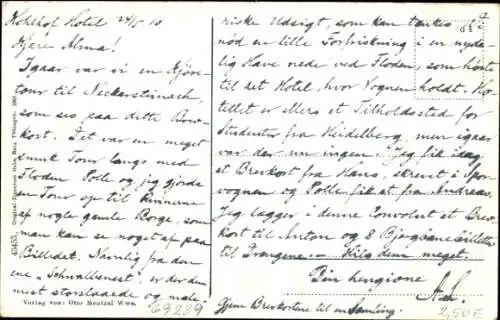 Kohlhof Hotel 24/5-10
Kjære Alma!
Igaar var vi en Kjøre-
tour til Neckarsteinach,
som ses paa dette Brev-
kort. Det var en meget
smuk Tour langs med
Floden. Polle og jeg gjorde
en Tour op til Ruinerne
af nogle gamle Borge, som
man kan se noget af paa
Billedet. Navnlig fra den
ene "Schwalbenest", er der den
mest storslaaede og male-
riske Udsigt, som kan tænkes. Vi
nød en lille Forfriskning i en nyde-
lig Have nede ved Floden, som hørte
til det Hotel, hvor Vognen holdt. Ho-
tellet er ellers et Tilholdssted for
Studenter fra Heidelberg, men igaar
var der en ingen. Jeg fik idag
et Brevkort fra Hans, skrevet i Spor-
vognen og Polle fik et fra Andreas.
Jeg lægger i denne Convolut et Brev-
kort til Anton og 8 Bjergbanebilletter
til Drengene. Hils dem meget.
Din hengivne
A.L.
Gjem Brevkortene til en Samling.
Verlag von: Otto Meutzel Wwe.
69239
2,50 E